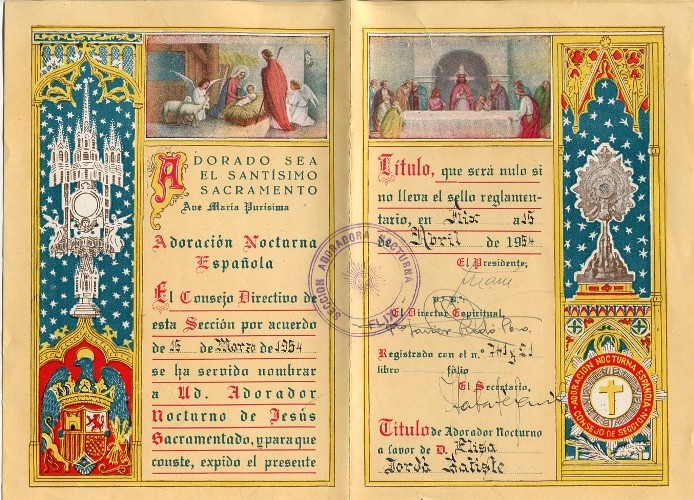 ADORADO SEA
EL SANTÍSIMO
SACRAMENTO
Ave María Purísima
Adoración Nocturna
Española
El Consejo Directivo de
esta Sección por acuerdo
de 15 de Marzo de 1954
se ha servido nombrar
a Ud. Adorador
Nocturno de Jesús
Sacramentado, y para que
conste, expido el presente
Título, que será nulo si
no lleva el sello reglamen-
tario, en Flix a 15
de Abril de 1954
El Presidente,
El Director Espiritual,
Registrado con el n.º 741 y 21
libro folio
El Secretario,
Título de Adorador Nocturno
a favor de D. Elisa
Jordá Batiste
SECCION ADORADORA NOCTURNA
FLIX
ADORACION NOCTURNA ESPAÑOLA
CONSEJO DE SECCION